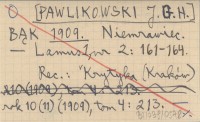 [PAWLIKOWSKI J. G. H.]
BĄK 1909. Niemrawiec.
— Lamus 1, nr 2: 161-164.
Rec.: "Krytyka (Kraków)
A10 (1909) tom 4: 213.
rok 10(11) (1909), tom 4: 213.